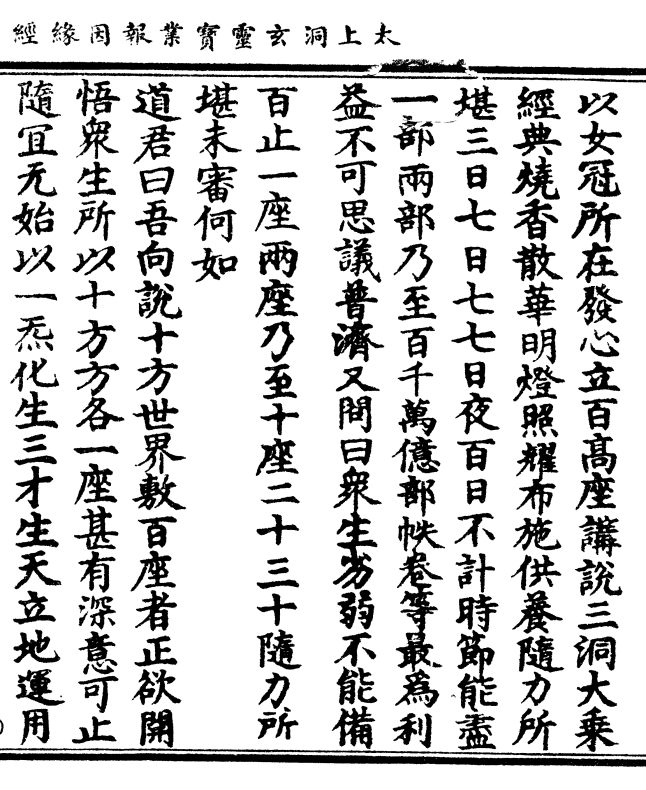 太上洞玄靈寶業報因緣經
以女冠所在發心立百高座講說三洞大乗
經典燒香散華明燈照耀布施供養隨力所
堪三日七日七七日夜百日不計時節能盡
一部兩部乃至百千萬億部帙卷等最爲利
益不可思議普濟又問曰衆生劣弱不能備
百止一座兩座乃至十座二十三十隨力所
堪未審何如
道君曰吾向說十方世界敷百座者正欲開
悟衆生所以十方方各一座甚有深意可止
隨宜无始以一炁化生三才生天立地運用